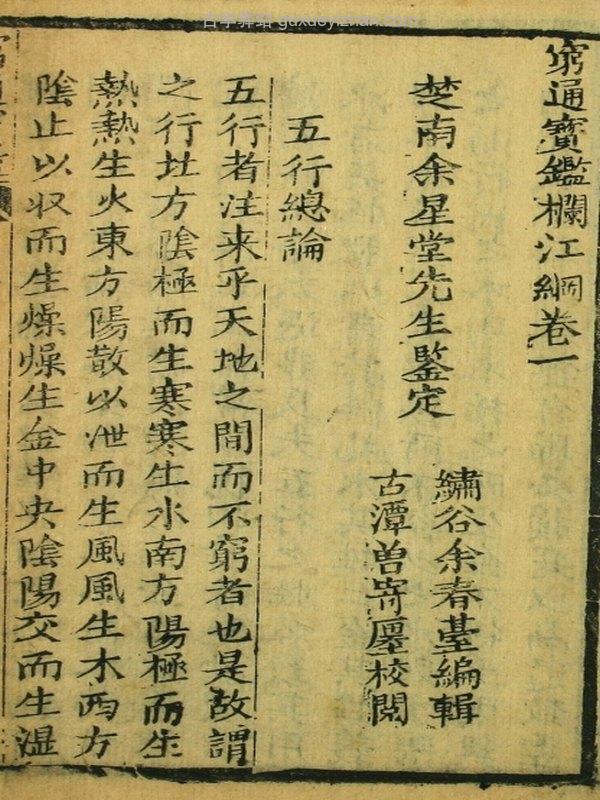 窮通寳鑑欄江綱卷一
楚南余星堂先生鍳定
繡谷余春臺編輯
古潭曽寄㕓校閲
五行總論
五行者注来乎天地之間而不窮者也是故謂
之行北方隂極而生寒寒生水南方陽極而生
熱熱生火東方陽散以泄而生風風生木西方
隂止以収而生燥燥生金中央隂陽交而生湿